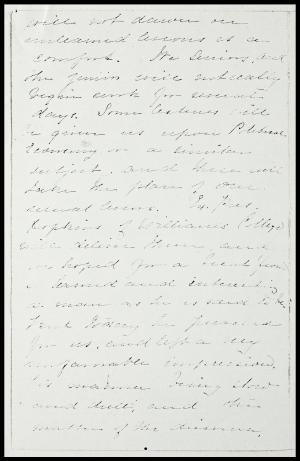 will not dawn on
unlearned lessons as a
comfort. We Seniors, and
the Juniors will not really
begin work for several
days. Some lectures will
be given us upon Political
Economy or a similar
subject, and these will
take the place of our
usual lessons. Ex. Pres.
Hopkins of Williams College
will deliver them, and
we hoped for a treat from
so learned and interesting
a man as he is said to be,
but today he preached
for us, and left a very
unfavorable impression,
his manner being slow
and dull, and the
matter of the discourse,